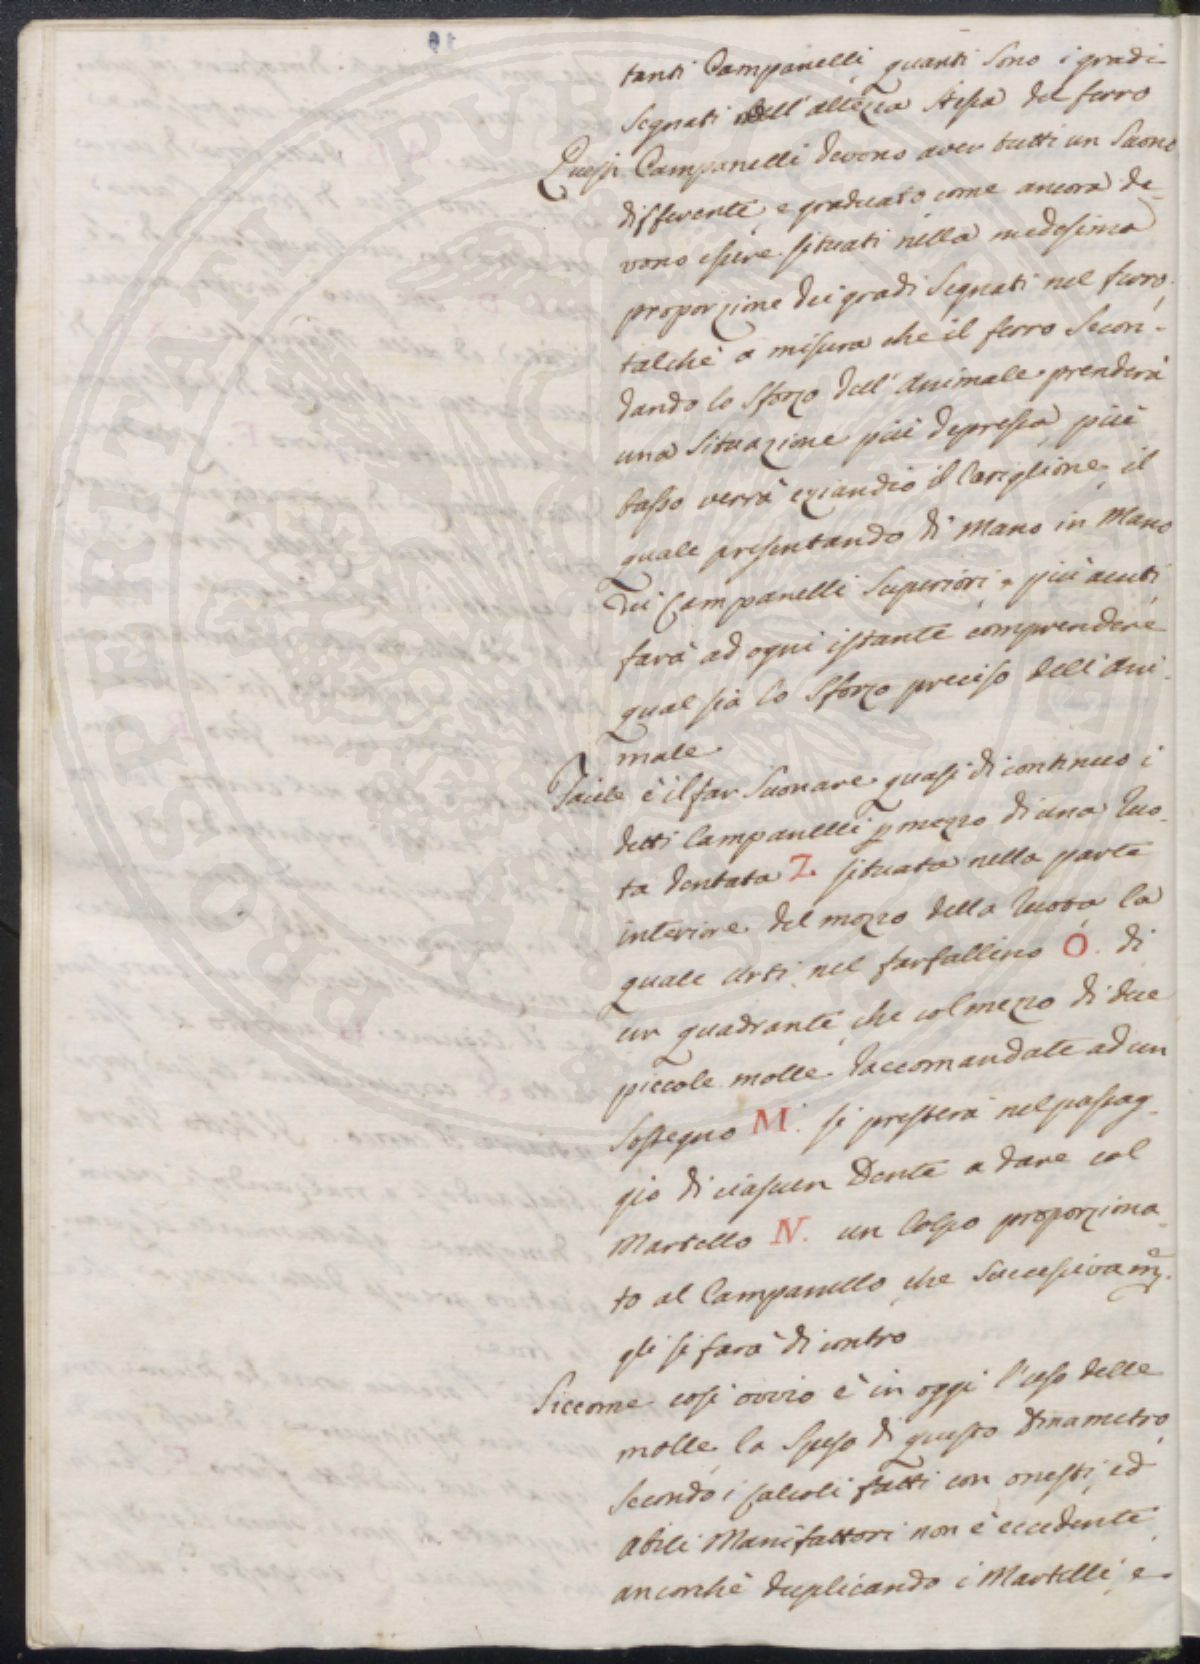 tanti Campanelli, quanti sono i gradi
segnati dell'altezza stessa del ferro
Questi Campanelli devono aver tutti un Suono
differente, e graduato come ancora de-
vono essere situati nella medesima
proporzione dei gradi segnati nel ferro,
talchè a misura che il ferro secon-
dando lo sforzo dell'Animale prenderà
una situazione più depressa, più
basso verrà eziandio il Cariglione, il
quale presentando di Mano in Mano
dei Campanelli superiori, e più acuti,
farà ad ogni istante comprendere
qual sia lo sforzo preciso dell'Ani-
male.
Facile è il far suonare quasi di continuo i
detti Campanelli p mezzo di una Ruo-
ta dentata Z. situata nella parte
interiore del mozzo della Ruota la
quale urti nel farfallino O. di
un quadrante, che col mezzo di due
piccole molle raccomandate ad un
sostegno M. si presterà nel passag-
gio di ciascun Dente a dare col
Martello N. un Colpo proporziona-
to al Campanello, che successivam.e
gli si farà di contro
Siccome così ovvio è in oggi l'uso delle
molle, la spesa di questo Dinametro,
secondo i Calcoli fatti con onesti, ed
abili Manifattori non è eccedente,
ancorchè duplicando i Martelli, e